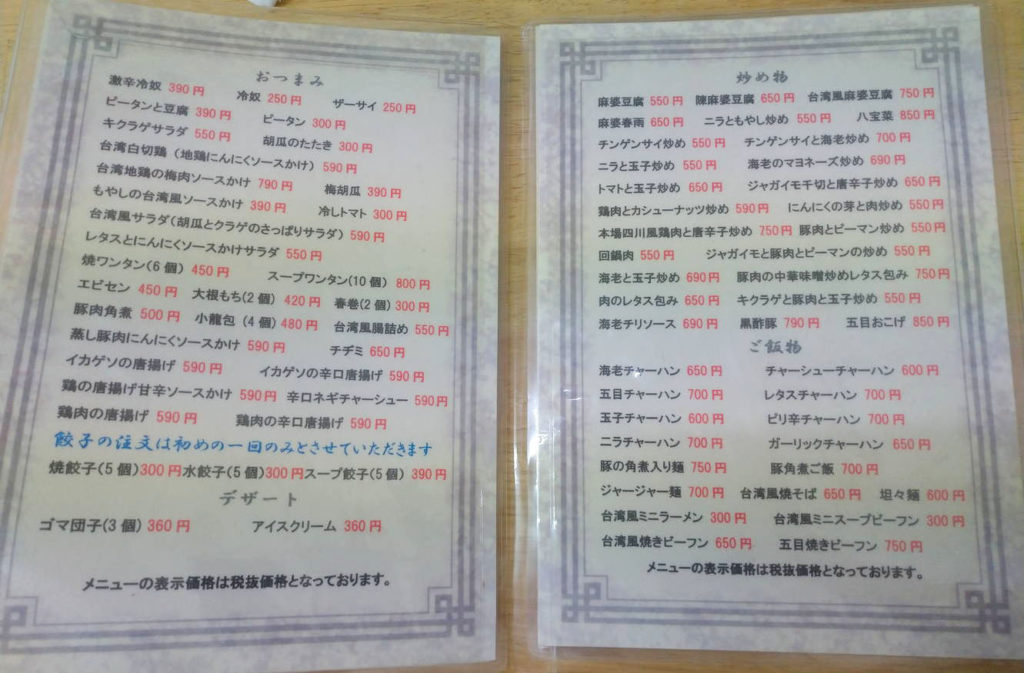 おつまみ
激辛冷奴 390円 冷奴 250円 ザーサイ 250円
ピータンと豆腐 390円 ピータン 300円
キクラゲサラダ 550円 胡瓜のたたき 300円
台湾白切鶏（地鶏にんにくソースかけ）590円
台湾地鶏の梅肉ソースかけ 790円 梅胡瓜 390円
もやしの台湾風ソースかけ 390円 冷しトマト 300円
台湾風サラダ(胡瓜とクラゲのさっぱりサラダ）590円
レタスとにんにくソースかけサラダ 550円
焼ワンタン(6個）450円 スープワンタン(10個）800円
エビセン 450円 大根もち(2個）420円 春巻(2個)300円
豚肉角煮 500円 小龍包（4個)480円 台湾風腸詰め 550円
蒸し豚肉にんにくソースかけ 590円 チヂミ 650円
イカゲソの唐揚げ 590円 イカゲソの辛口唐揚げ 590円
鶏の唐揚げ甘辛ソースかけ 590円 辛口ネギチャーシュー 590円
鶏肉の唐揚げ 590円 鶏肉の辛口唐揚げ 590円
餃子の注文は初めの一回のみとさせていただきます
焼餃子(5個)300円水餃子(5個)300円スープ餃子(5個）390円
デザート
ゴマ団子(3個）360円 アイスクリーム 360円
メニューの表示価格は税抜価格となっております。
炒め物
麻婆豆腐 550円 陳麻婆豆腐 650円 台湾風麻婆豆腐 750円
麻婆春雨 650円 ニラともやし炒め 550円 八宝菜 850円
チンゲンサイ炒め 550円 チンゲンサイと海老炒め 700円
ニラと玉子炒め 550円 海老のマヨネーズ炒め 690円
トマトと玉子炒め 650円 ジャガイモ千切と唐辛子炒め 650円
鶏肉とカシューナッツ炒め 590円 にんにくの芽と肉炒め 550円
本場四川風鶏肉と唐辛子炒め 750円 豚肉とピーマン炒め 550円
回鍋肉 550円 ジャガイモと豚肉とピーマンの炒め 550円
海老と玉子炒め 690円 豚肉の中華味噌炒めレタス包み 750円
肉のレタス包み 650円 キクラゲと豚肉と玉子炒め 550円
海老チリソース 690円 黒酢豚 790円 五目おこげ 850円
ご飯物
海老チャーハン 650円 チャーシューチャーハン 600円
五目チャーハン 700円 レタスチャーハン 700円
玉子チャーハン 600円 ピリ辛チャーハン 700円
ニラチャーハン 700円 ガーリックチャーハン 650円
豚の角煮入り麺 750円 豚角煮ご飯 700円
ジャージャー麺 700円 台湾風焼そば 650円 坦々麺 600円
台湾風ミニラーメン 300円 台湾風ミニスープビーフン 300円
台湾風焼きビーフン 650円 五目焼きビーフン 750円
メニューの表示価格は税抜価格となっております。